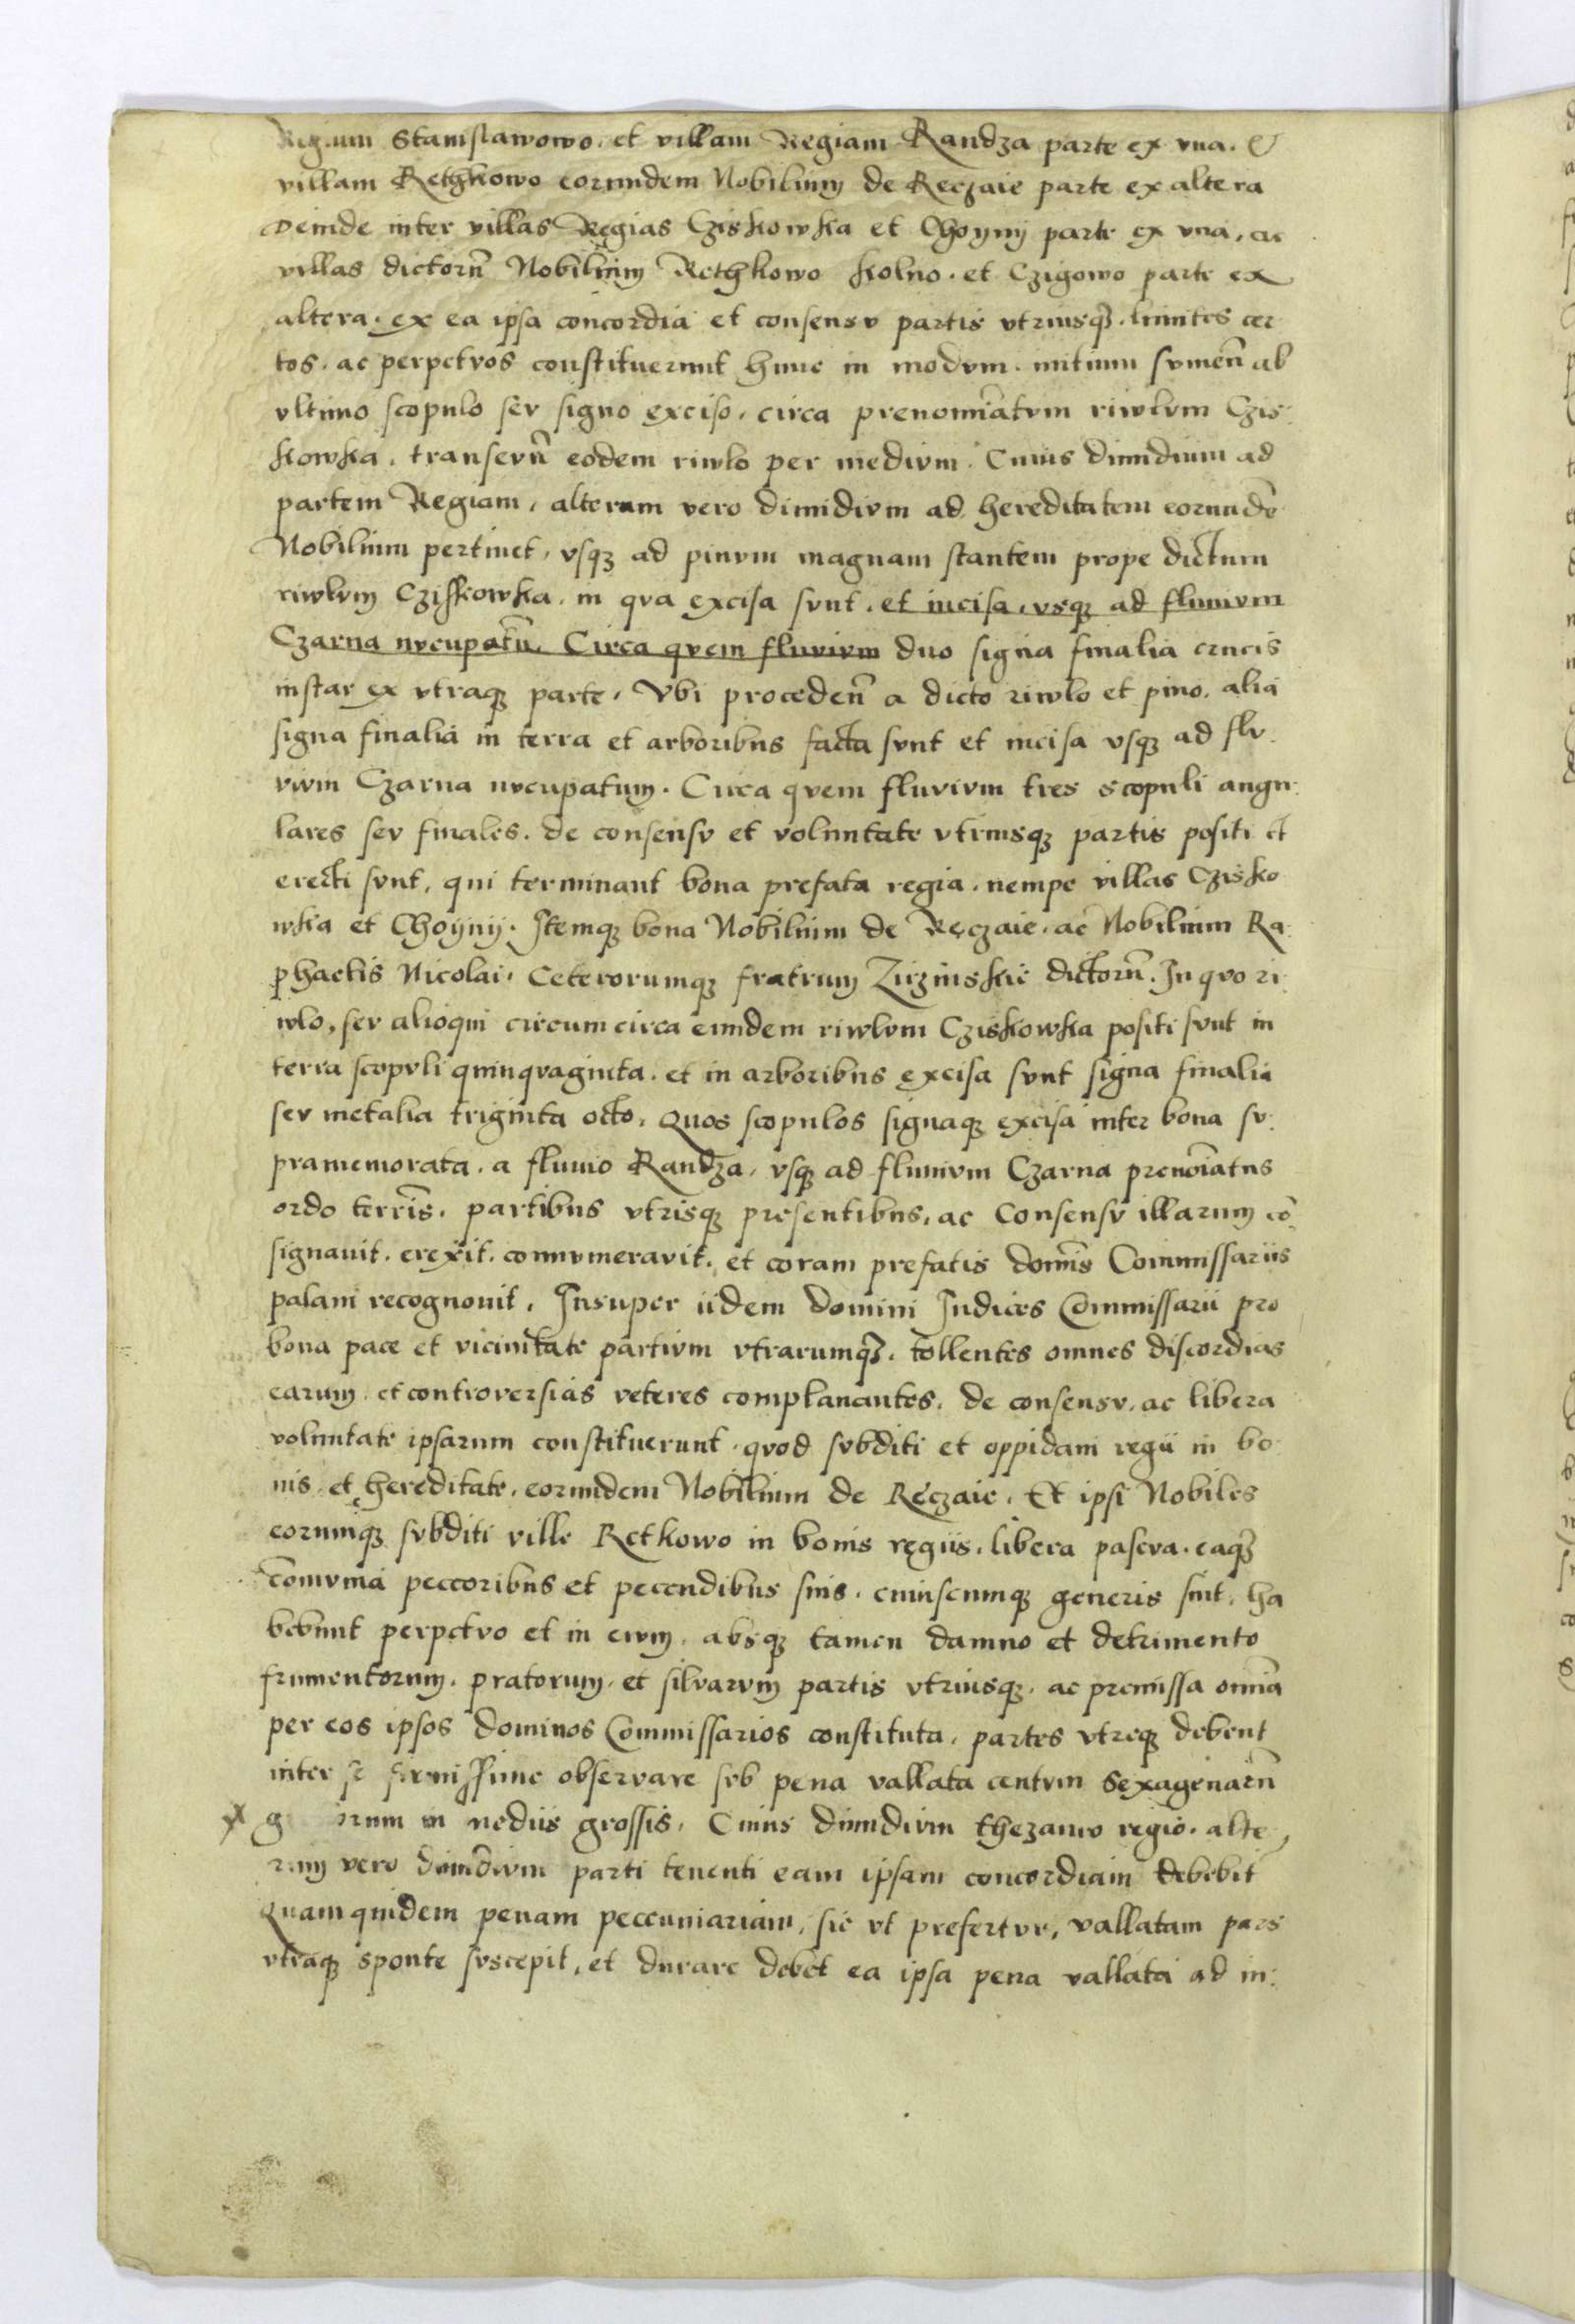 Regium Stanislawowo. et villam Regiam Randza parte ex vna. &
villam Rethkowo eorundem Nobilium de Reczaie parte ex altera
Deinde inter villas Regias Cziskowka et Choyny parte ex vna, ac
villas dictorū Nobilium Rethkowo Kolno. et Czigowo parte ex
altera. ex ea ipsa concordia et consensv partis vtriusqꝫ. limites cer
tos. ac perpetvos constituerunt hunc in modvm. initium svmen̄ ab
vltimo scopulo sev signo exciso. circa prenomīatvm riwlvm Czis:
kowka. transevn̄ eodem riwlo per medivm. Cuius dimidium ad
partem Regiam, alterum vero dimidivm ad hereditatem eorundē
Nobilium pertinet, vsqꝫ ad pinvm magnam stantem prope dictum
riwlvm Cziskowka. in qva excisa svnt. et incisa, vsqꝫ ad fluuivm
Czarna nvcupatū. Circa qvem fluvivm duo signa finalia crucis
instar ex vtraqꝫ parte. Vbi proceden̄ a dicto riwlo et pino. alia
signa finalia in terra et arboribus facta svnt et incisa vsqꝫ ad flv.
vivm Czarna nvcupatum. Circa qvem fluvivm tres scopuli angu:
lares sev finales. de consensv et voluntate vtriusqꝫ partis positi et
erecti svnt, qui terminant bona prefata regia. nempe villas Czisko
wka et Choynij. Itemqꝫ bona Nobilium de Ręczaie. ac Nobilium Ra:
phaelis Nicolai. Ceterorumqꝫ fratrum Zirzinskie dictorū. In qvo ri:
wlo, sev alioqui circumcirca eundem riwlvm Cziskowka positi svnt in
terra scopvli quinqvaginta. et in arboribus excisa svnt signa finalia
sev metalia triginta octo. Quos scopulos signaqꝫ excisa inter bona sv:
pramemorata. a fluuio Randza, vsqꝫ ad fluuivm Czarna prenoīatus
ordo terrīs. partibus vtrisqꝫ presentibus, ac Consensv illarum cō
signauit. erexit. connvmeravit. et coram prefatis domīs Commissariis
palam recognouit. Insuper iidem Domini Iudices Commissarii pro
bona pace et vicinitate partivm vtrarumqꝫ. tollentes omnes discordias
earum. et controversias veteres complanantes. de consensv. ac libera
voluntate ipsarum constituerunt. qvod svbditi et oppidani regii in bo
nis. et hereditate. eorundem Nobilium de Ręczaie. Et ipsi Nobiles
eorumqꝫ svbditi ville Retkowo in bonis ręgiis. libera pascva. eaqꝫ
com̄vnia peccoribus et pecudibus suis. cuiuscumqꝫ generis sint. ha
bebunt perpetvo et in ewm. absqꝫ tamen damno et detrimento
frumentorum. pratorum. et silvarvm partis vtriusqꝫ. ac premissa om̄ia
per eos ipsos Dominos Commissarios constituta. partes vtreqꝫ debent
inter se firmissime observare svb pena vallata centvm sexagenarū
x g orum in mediis grossis. Cuius dimidivm thezauro regio. alte
rum vero dimidivm parti tenenti eam ipsam concordiam debebit
Quam quidem penam peccuniariam, sic vt prefertvr, vallatam pars
vtraqꝫ sponte svscepit, et durare debet ea ipsa pena vallata ad in: